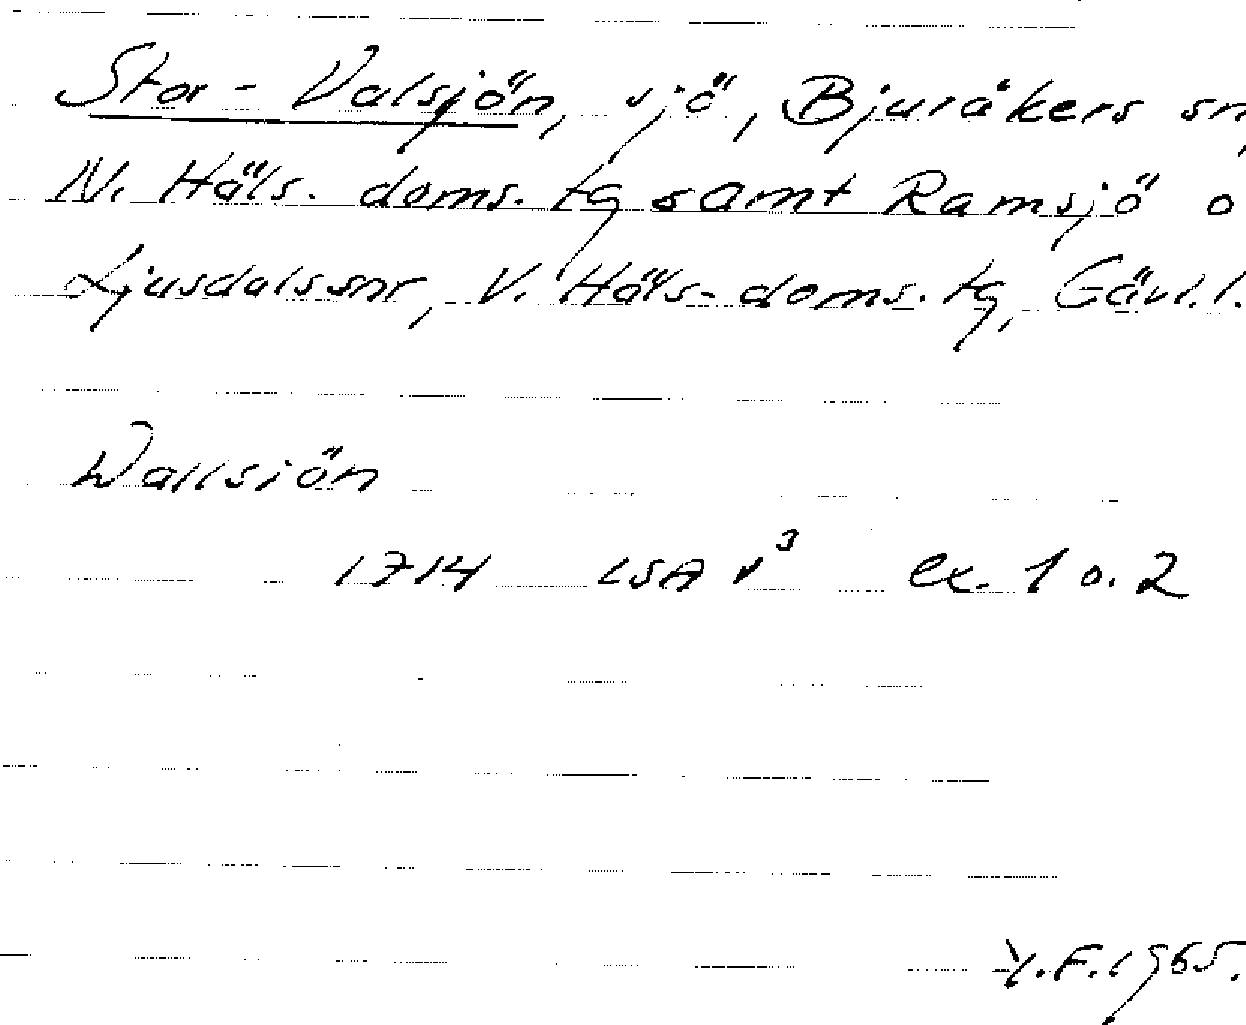 Stor-Valsjön, sjö, Bjuråkers sn,
N. Häls. doms. tg samt Ramsjö o
Ljusdalssnr, V. Häls. doms. tg, Gävl.l.
Wallsiön
1714 LSA v³ ex. 1 o. 2
Y.F.1965.